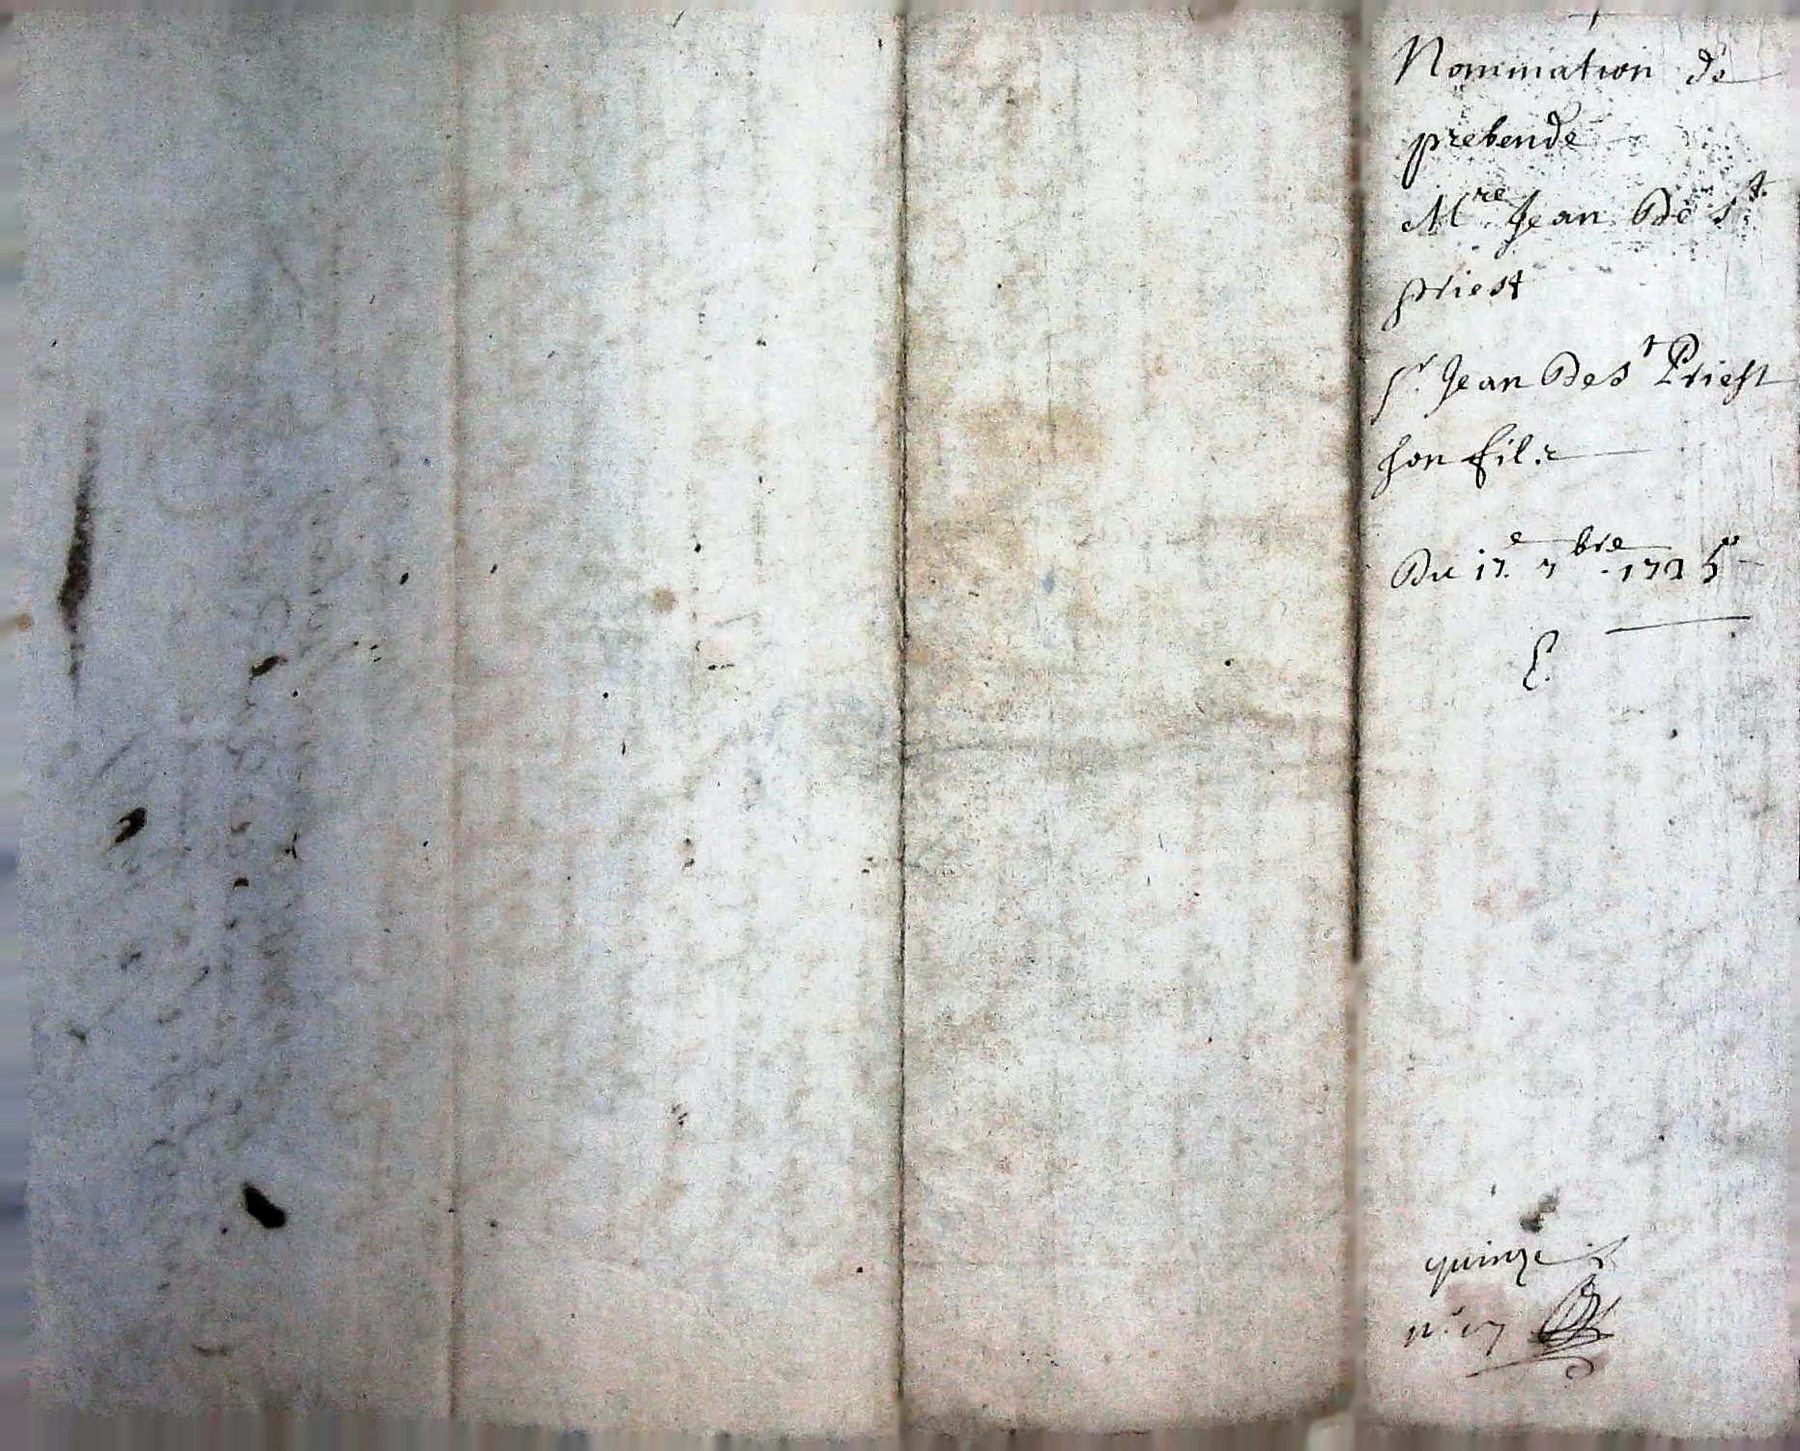 Nommation de
prebende
Mre Jean De St
priest
Sr. Jean De St Priest
son fils
Du 17e 7bre 1725
E.
quinze
n.° 17